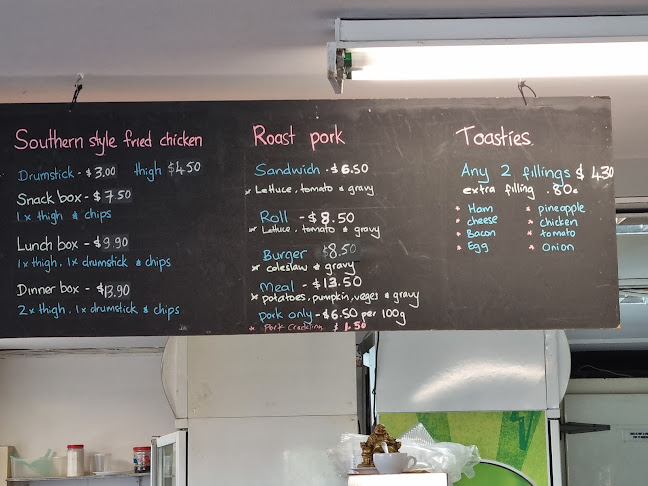 Southern style fried chicken
Drumstick - $3.00 thigh $4.50
Snack box - $7.50
1x thigh & chips
Lunch box - $9.90
1x thigh, 1x drumstick & chips
Dinner box - $13.90
2x thigh, 1x drumstick & chips
Roast pork
Sandwich - $6.50
* Lettuce, tomato & gravy
Roll - $8.50
* Lettuce, tomato & gravy
Burger $8.50
* coleslaw & gravy
Meal - $13.50
* potatoes, pumpkin, veges & gravy
pork only - $6.50 per 100g
* Pork Crackling $1.50
Toasties.
Any 2 fillings $4.30
extra filling .80c
* Ham * pineapple
* cheese * chicken
* Bacon * tomato
* Egg * Onion